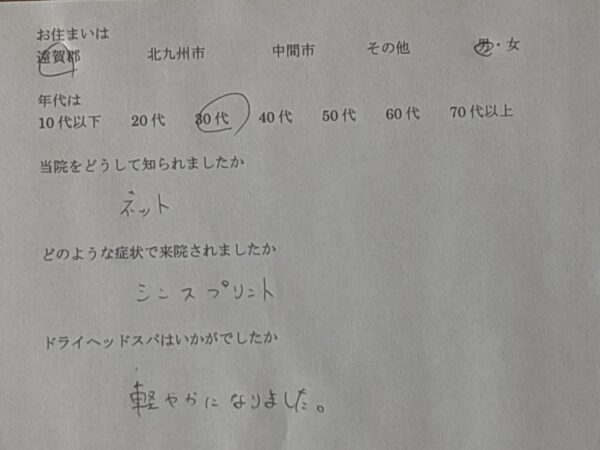 お住まいは
遠賀郡 北九州市 中間市 その他 男・女
年代は
10代以下 20代 30代 40代 50代 60代 70代以上
当院をどうして知られましたか
ネット
どのような症状で来院されましたか
シンスプリント
ドライヘッドスパはいかがでしたか
軽やかになりました。